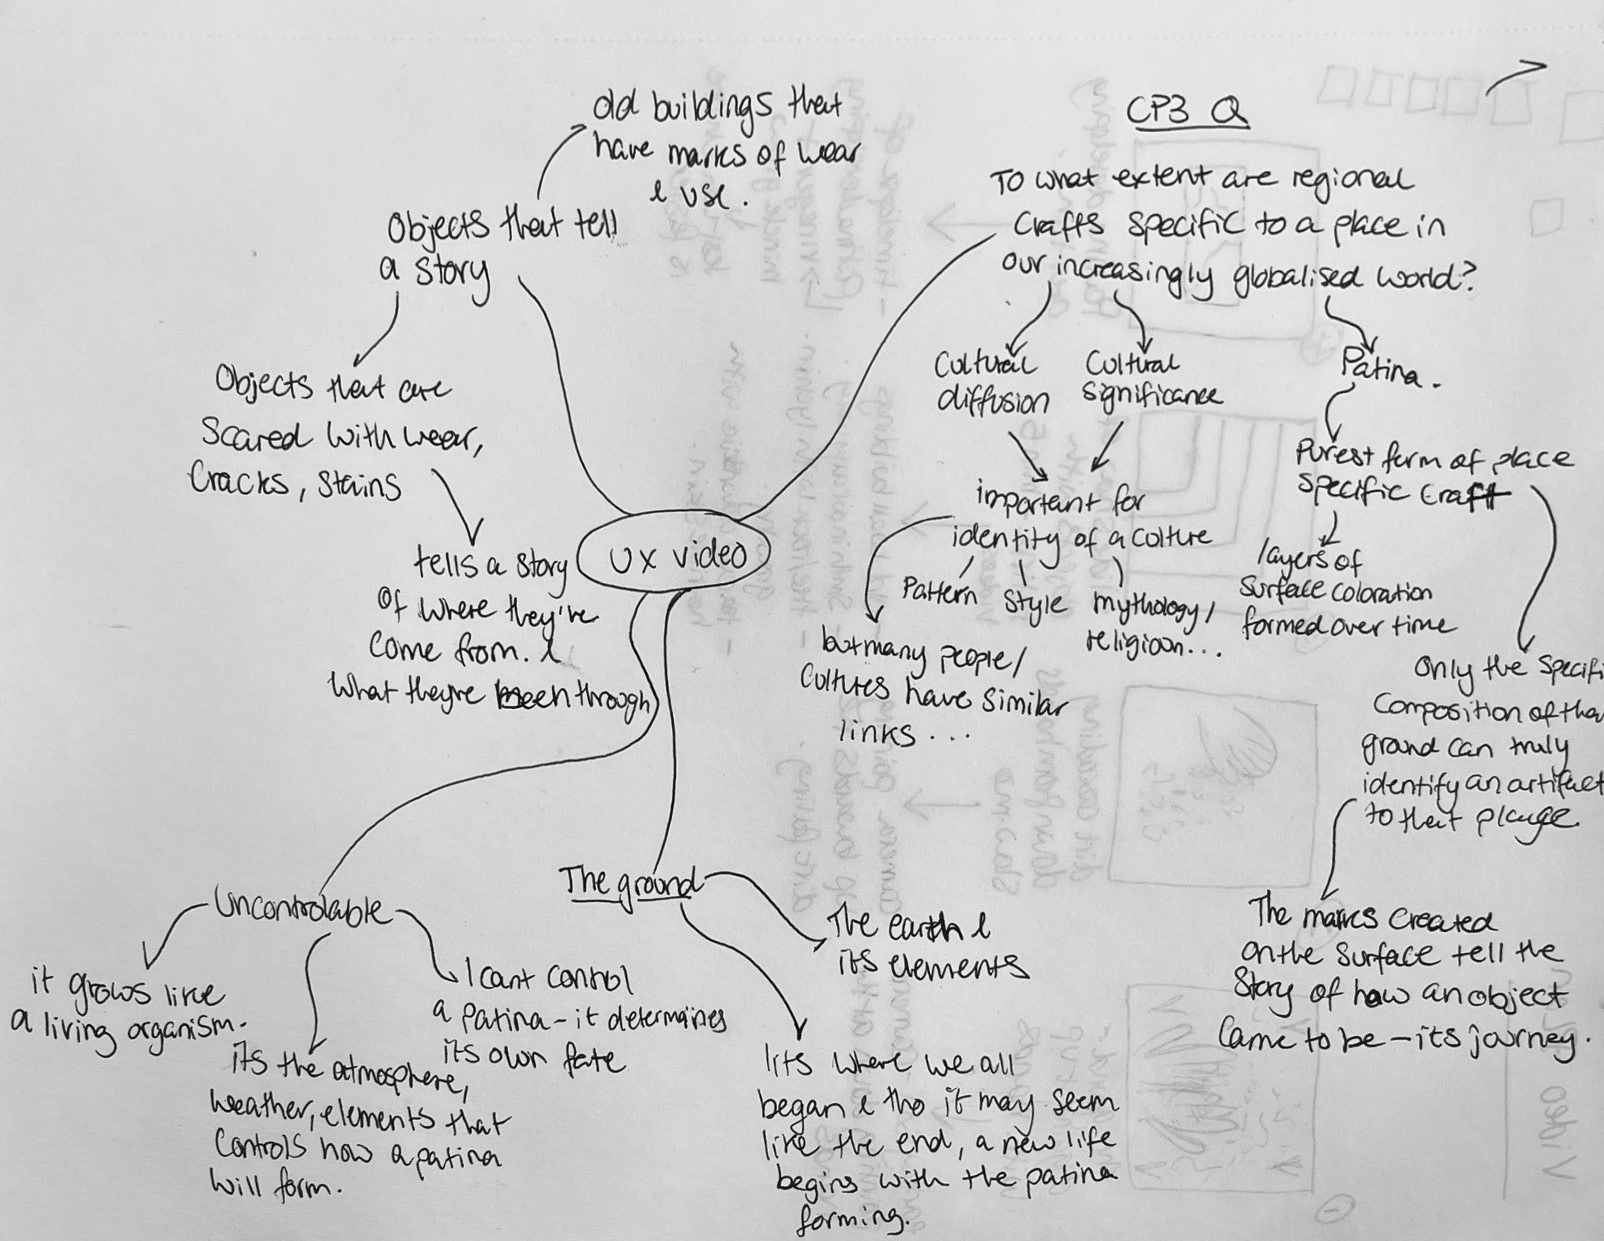 old buildings that
have marks of wear
& use.
Objects that tell
a story
Objects that are
scared with wear,
cracks, stains
tells a story
of where they're
come from. &
what they're been through
UX video
CP3 Q
To what extent are regional
crafts specific to a place in
our increasingly globalised world?
Cultural
diffusion
Cultural
significance
important for
identity of a culture
Pattern
Style
mythology/
religion...
but many people/
cultures have similar
links ...
Patina.
Purest form of place
specific craft
layers of
surface coloration
formed over time
Only the specifi
composition of tha
ground can truly
identify an artifact
to that place.
The marks created
on the surface tell the
story of how an object
came to be – its journey.
Uncontrolable
it grows like
a living organism.
its the atmosphere,
weather, elements that
controls how a patina
will form.
I cant control
a patina – it determines
its own fate
The ground
The earth &
its elements
its where we all
began & tho it may seem
like the end, a new life
begins with the patina
forming.